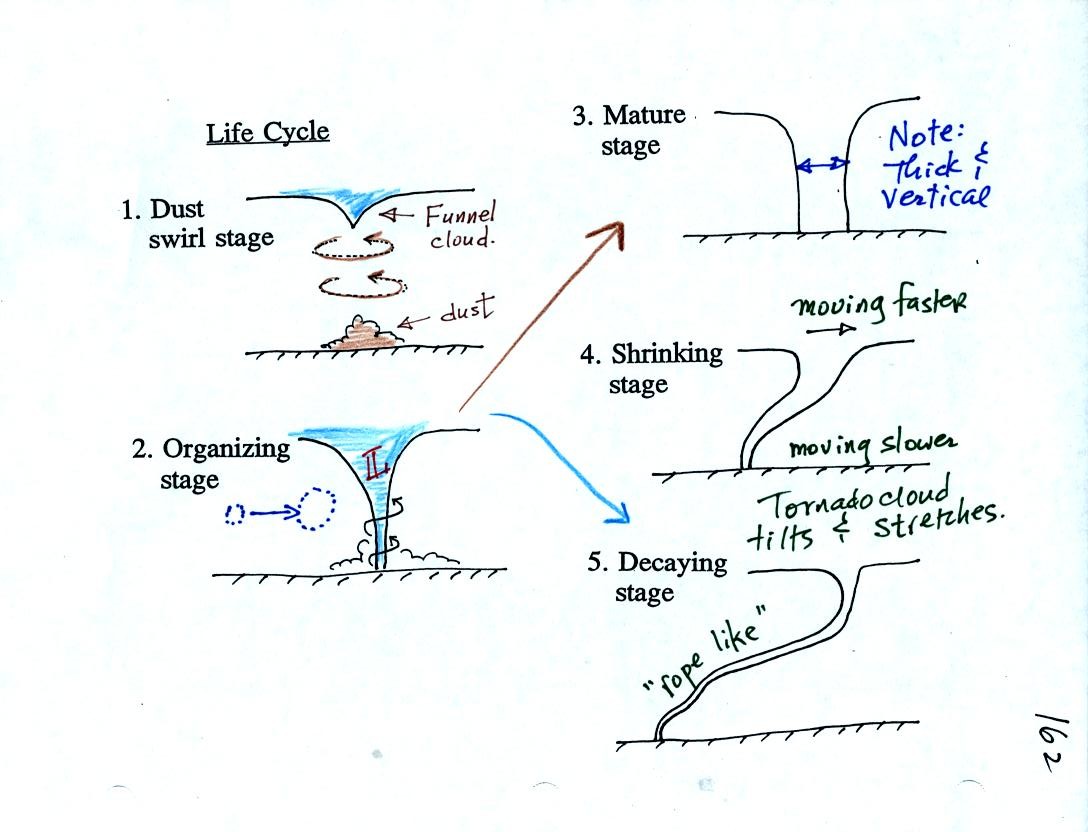 Life Cycle
1. Dust
swirl stage
Funnel
cloud.
dust
2. Organizing
stage
3. Mature
stage
Note:
Thick &
vertical
moving faster
4. Shrinking
stage
moving slower
Tornado cloud
tilts & stretches.
5. Decaying
stage
"rope like"
162